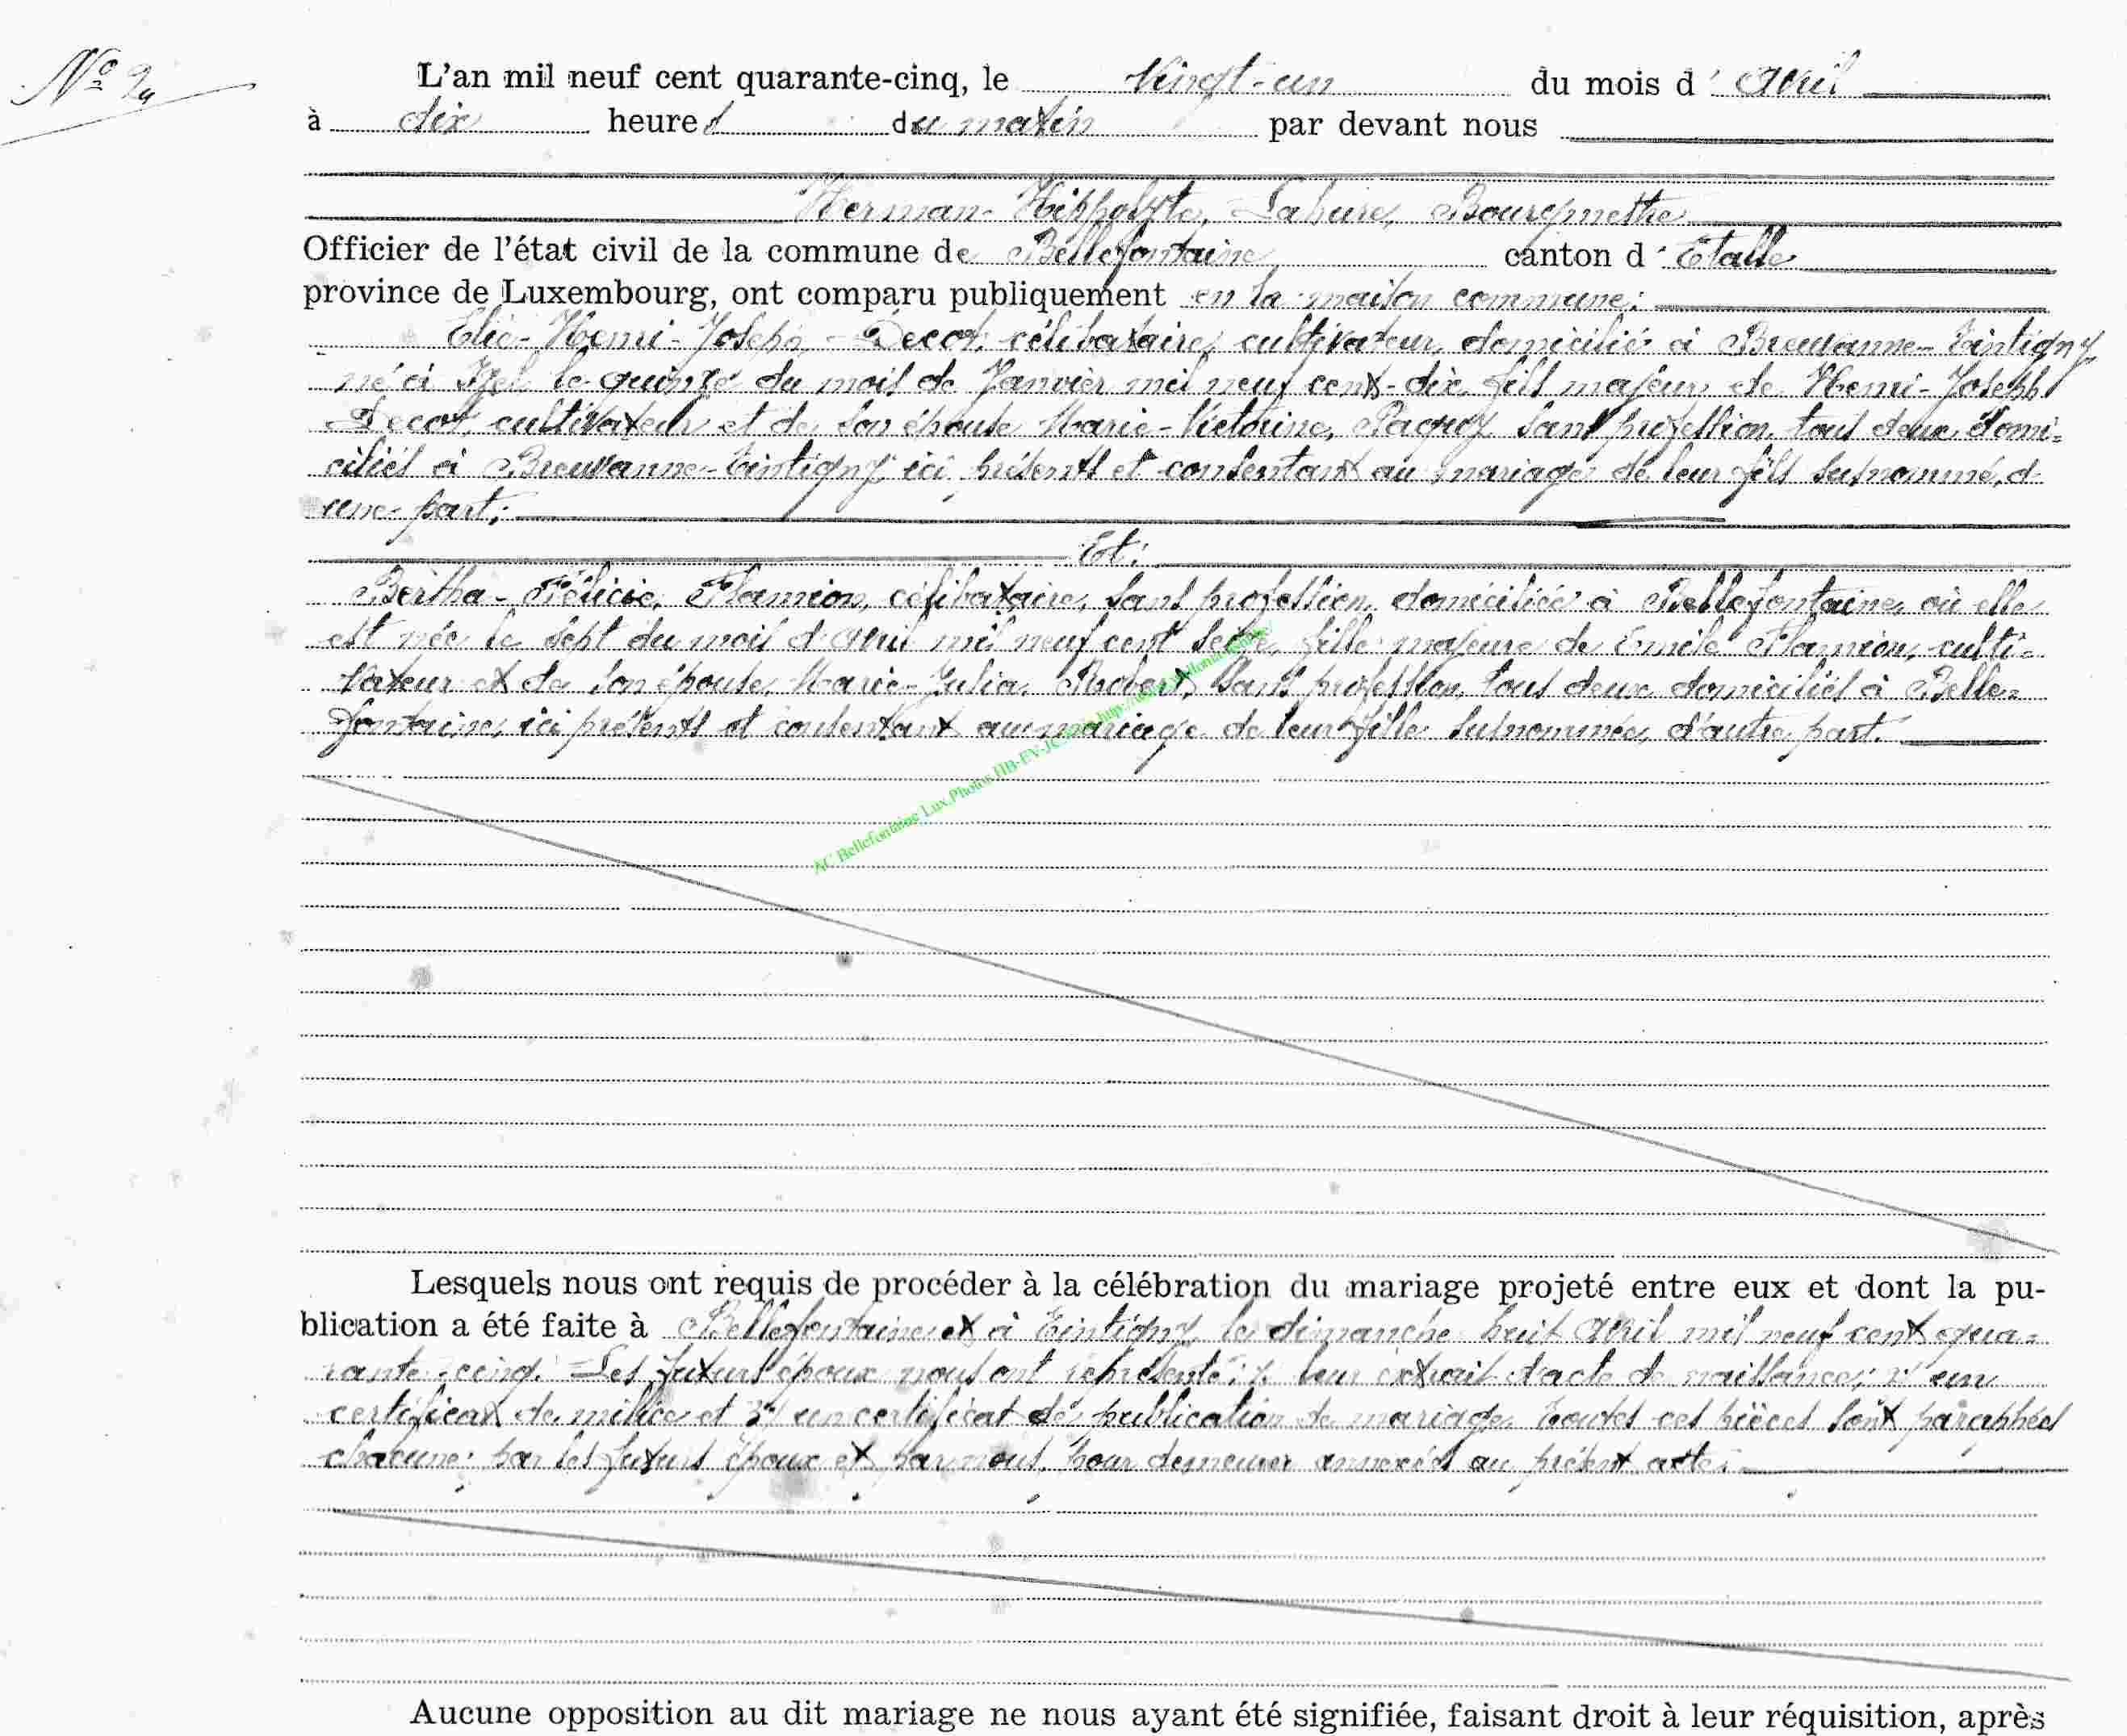 Nº 2
L'an mil neuf cent quarante-cinq, le vingt-un du mois d'Avril
à dix heures du matin par devant nous
Herman-Hippolyte, Lahure, Bourgmestre
Officier de l'état civil de la commune de Bellefontaine canton d'Etalle
province de Luxembourg, ont comparu publiquement en la maison commune:
Elie-Henri-Joseph, Decot, célibataire, cultivateur, domicilié à Breuvanne-Tintigny
né à Izel le quinze du mois de Janvier mil neuf cent-dix, fils majeur de Henri-Joseph
Decot, cultivateur et de son épouse Marie-Victorine, Paquy sans profession, tous deux domi=
ciliés à Breuvanne-Tintigny, ici présents et consentant au mariage de leur fils susnommé, d'
une part;
Et:
Bertha-Félicie, Flamion, célibataire, sans profession, domiciliée à Bellefontaine, où elle
est née le sept du mois d'avril mil neuf cent seize, fille majeure de Emile Flamion, culti=
vateur et de son épouse, Marie-Julia, Robert, sans profession, tous deux domiciliés à Belle=
fontaine, ici présents et consentant au mariage de leur fille susnommée, d'autre part.
AC Bellefontaine Lux Photos HB-EV-JC
Lesquels nous ont requis de procéder à la célébration du mariage projeté entre eux et dont la pu-
blication a été faite à Bellefontaine et à Tintigny le dimanche huit Avril mil neuf cent qua=
rante-cinq. Les futurs époux nous ont représenté: 1° leur extrait d'acte de naissance; 2° un
certificat de milice et 3° un certificat de publication de mariage. Toutes ces pièces sont paraphées
chacune par les futurs époux et par nous, pour demeurer annexées au présent acte.
Aucune opposition au dit mariage ne nous ayant été signifiée, faisant droit à leur réquisition, après